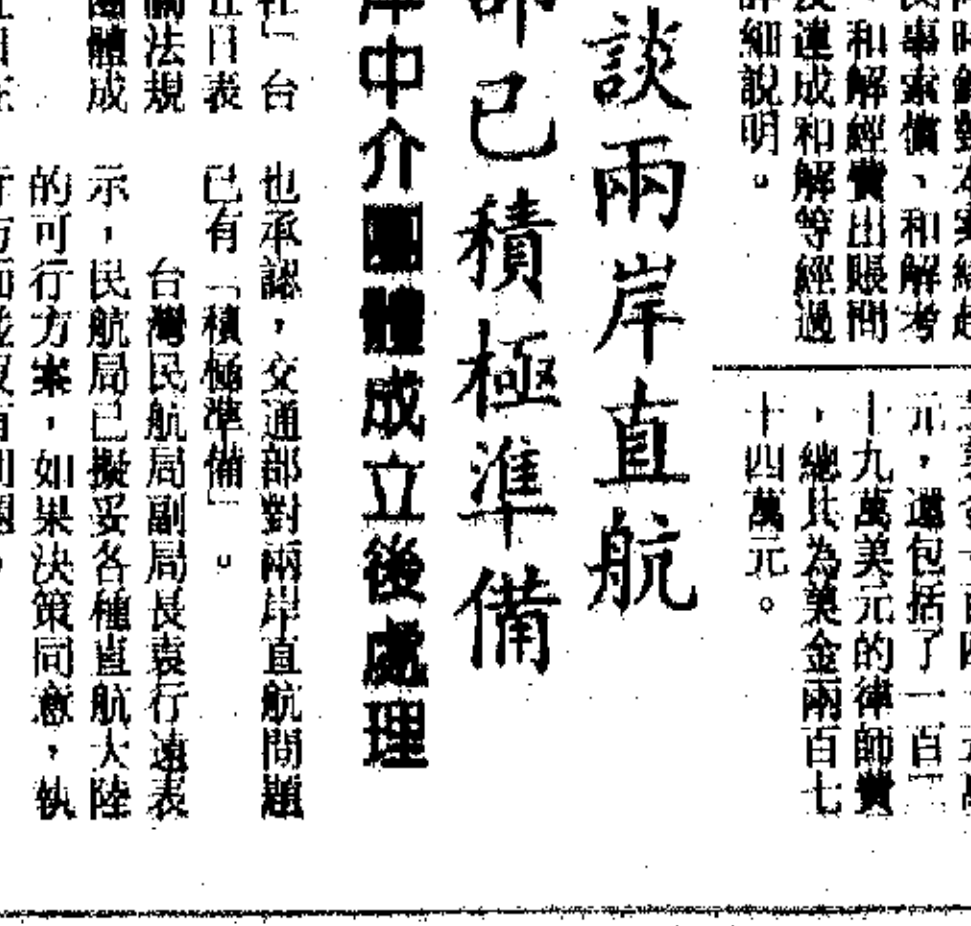 時
民事索償、和解考
、和解經費出賬問
及達成和解等經過
詳細說明。
元，還包括了一百二
十九萬美元的律師費
，總共為美金兩百七
十四萬元。
談兩岸直航
部已積極準備
岸中介團體成立後處理
社」台
也承認，交通部對兩岸直航問題
日表
已有「積極準備」。
關法規
台灣民航局副局長袁行遠表
團體成
示，民航局已擬妥各種直航大陸
的可行方案，如果決策同意，執
行方面並沒有問題。